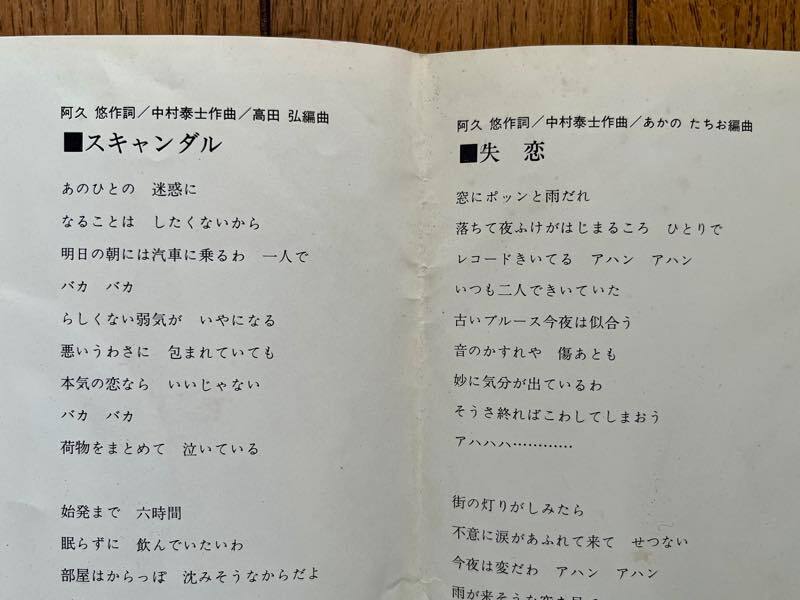 阿久 悠作詞／中村泰士作曲／高田 弘編曲
■スキャンダル
あのひとの　迷惑に
なることは　したくないから
明日の朝には汽車に乗るわ　一人で
バカ　バカ
らしくない弱気が　いやになる
悪いうわさに　包まれていても
本気の恋なら　いいじゃない
バカ　バカ
荷物をまとめて　泣いている
始発まで　六時間
眠らずに　飲んでいたいわ
部屋はからっぽ　沈みそうなからだよ
阿久 悠作詞／中村泰士作曲／あかの たちお編曲
■失　恋
窓にポツンと雨だれ
落ちて夜ふけがはじまるころ　ひとりで
レコードきいてる　アハン　アハン
いつも二人できいていた
古いブルース今夜は似合う
音のかすれや　傷あとも
妙に気分が出ているわ
そうさ終ればこわしてしまおう
アハハハ…………
街の灯りがしみたら
不意に涙があふれて来て　せつない
今夜は変だわ　アハン　アハン